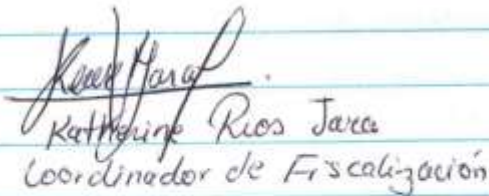 Katherine Rios Jara
Coordinador de Fiscalización